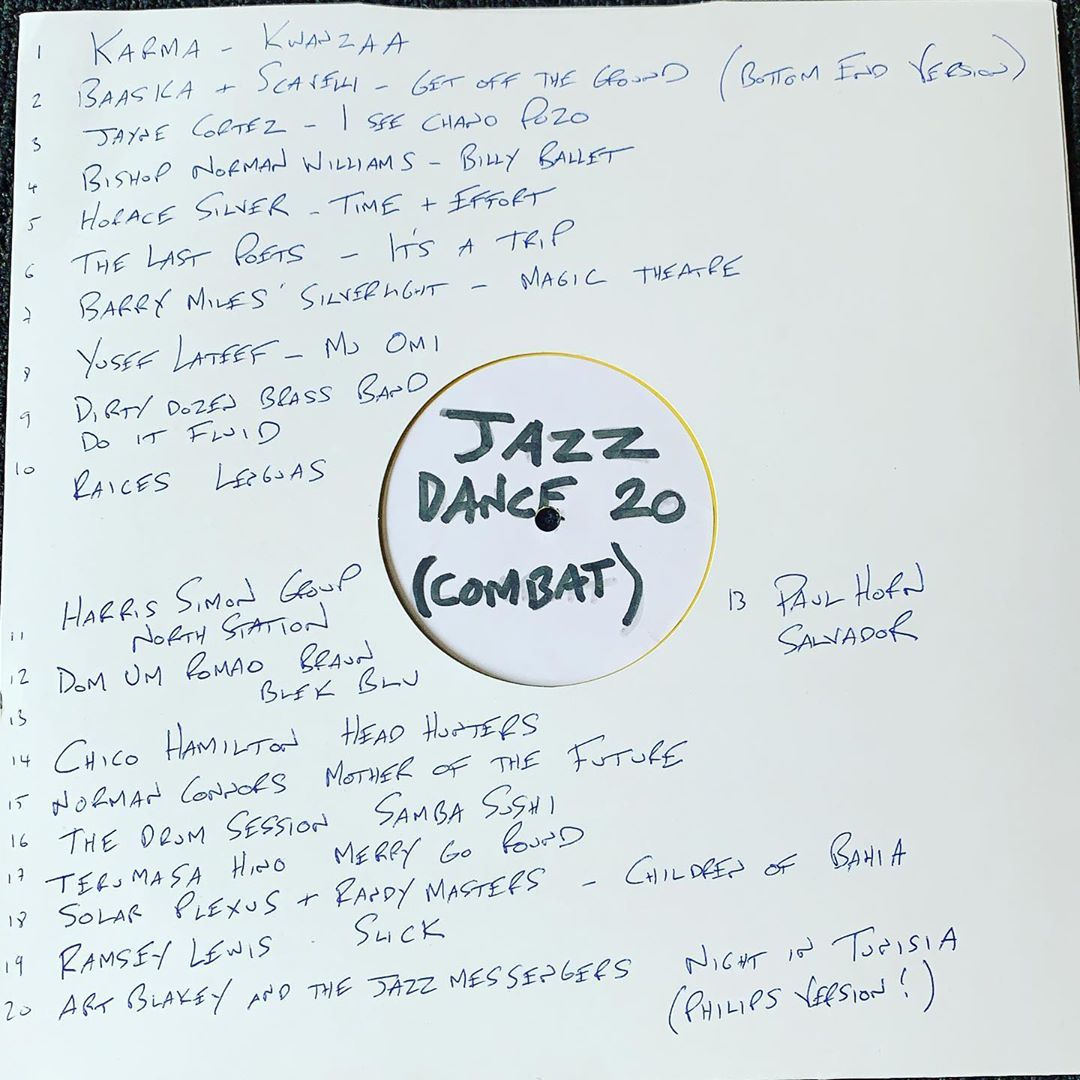 1 KARMA - KWANZAA
2 BAASKA + SCAVELLI - GET OFF THE GROUND (BOTTOM END VERSION)
3 JAYNE CORTEZ - I SEE CHANO POZO
4 BISHOP NORMAN WILLIAMS - BILLY BALLET
5 HORACE SILVER - TIME + EFFORT
6 THE LAST POETS - IT'S A TRIP
7 BARRY MILES' SILVERLIGHT - MAGIC THEATRE
8 YUSEF LATEEF - MU OMI
9 DIRTY DOZEN BRASS BAND
DO IT FLUID
10 RAICES LENGUAS
JAZZ
DANCE 20
(COMBAT)
11 HARRIS SIMON GROUP
NORTH STATION
12 DOM UM ROMAO BRAUN
BLEK BLU
13
13 PAUL HORN
SALVADOR
14 CHICO HAMILTON HEAD HUNTERS
15 NORMAN CONNORS MOTHER OF THE FUTURE
16 THE DRUM SESSION SAMBA SUSHI
17 TERUMASA HINO MERRY GO ROUND
18 SOLAR PLEXUS + RANDY MASTERS - CHILDREN OF BAHIA
19 RAMSEY LEWIS - SLICK
20 ART BLAKEY AND THE JAZZ MESSENGERS NIGHT IN TUNISIA
(PHILIPS VERSION!)